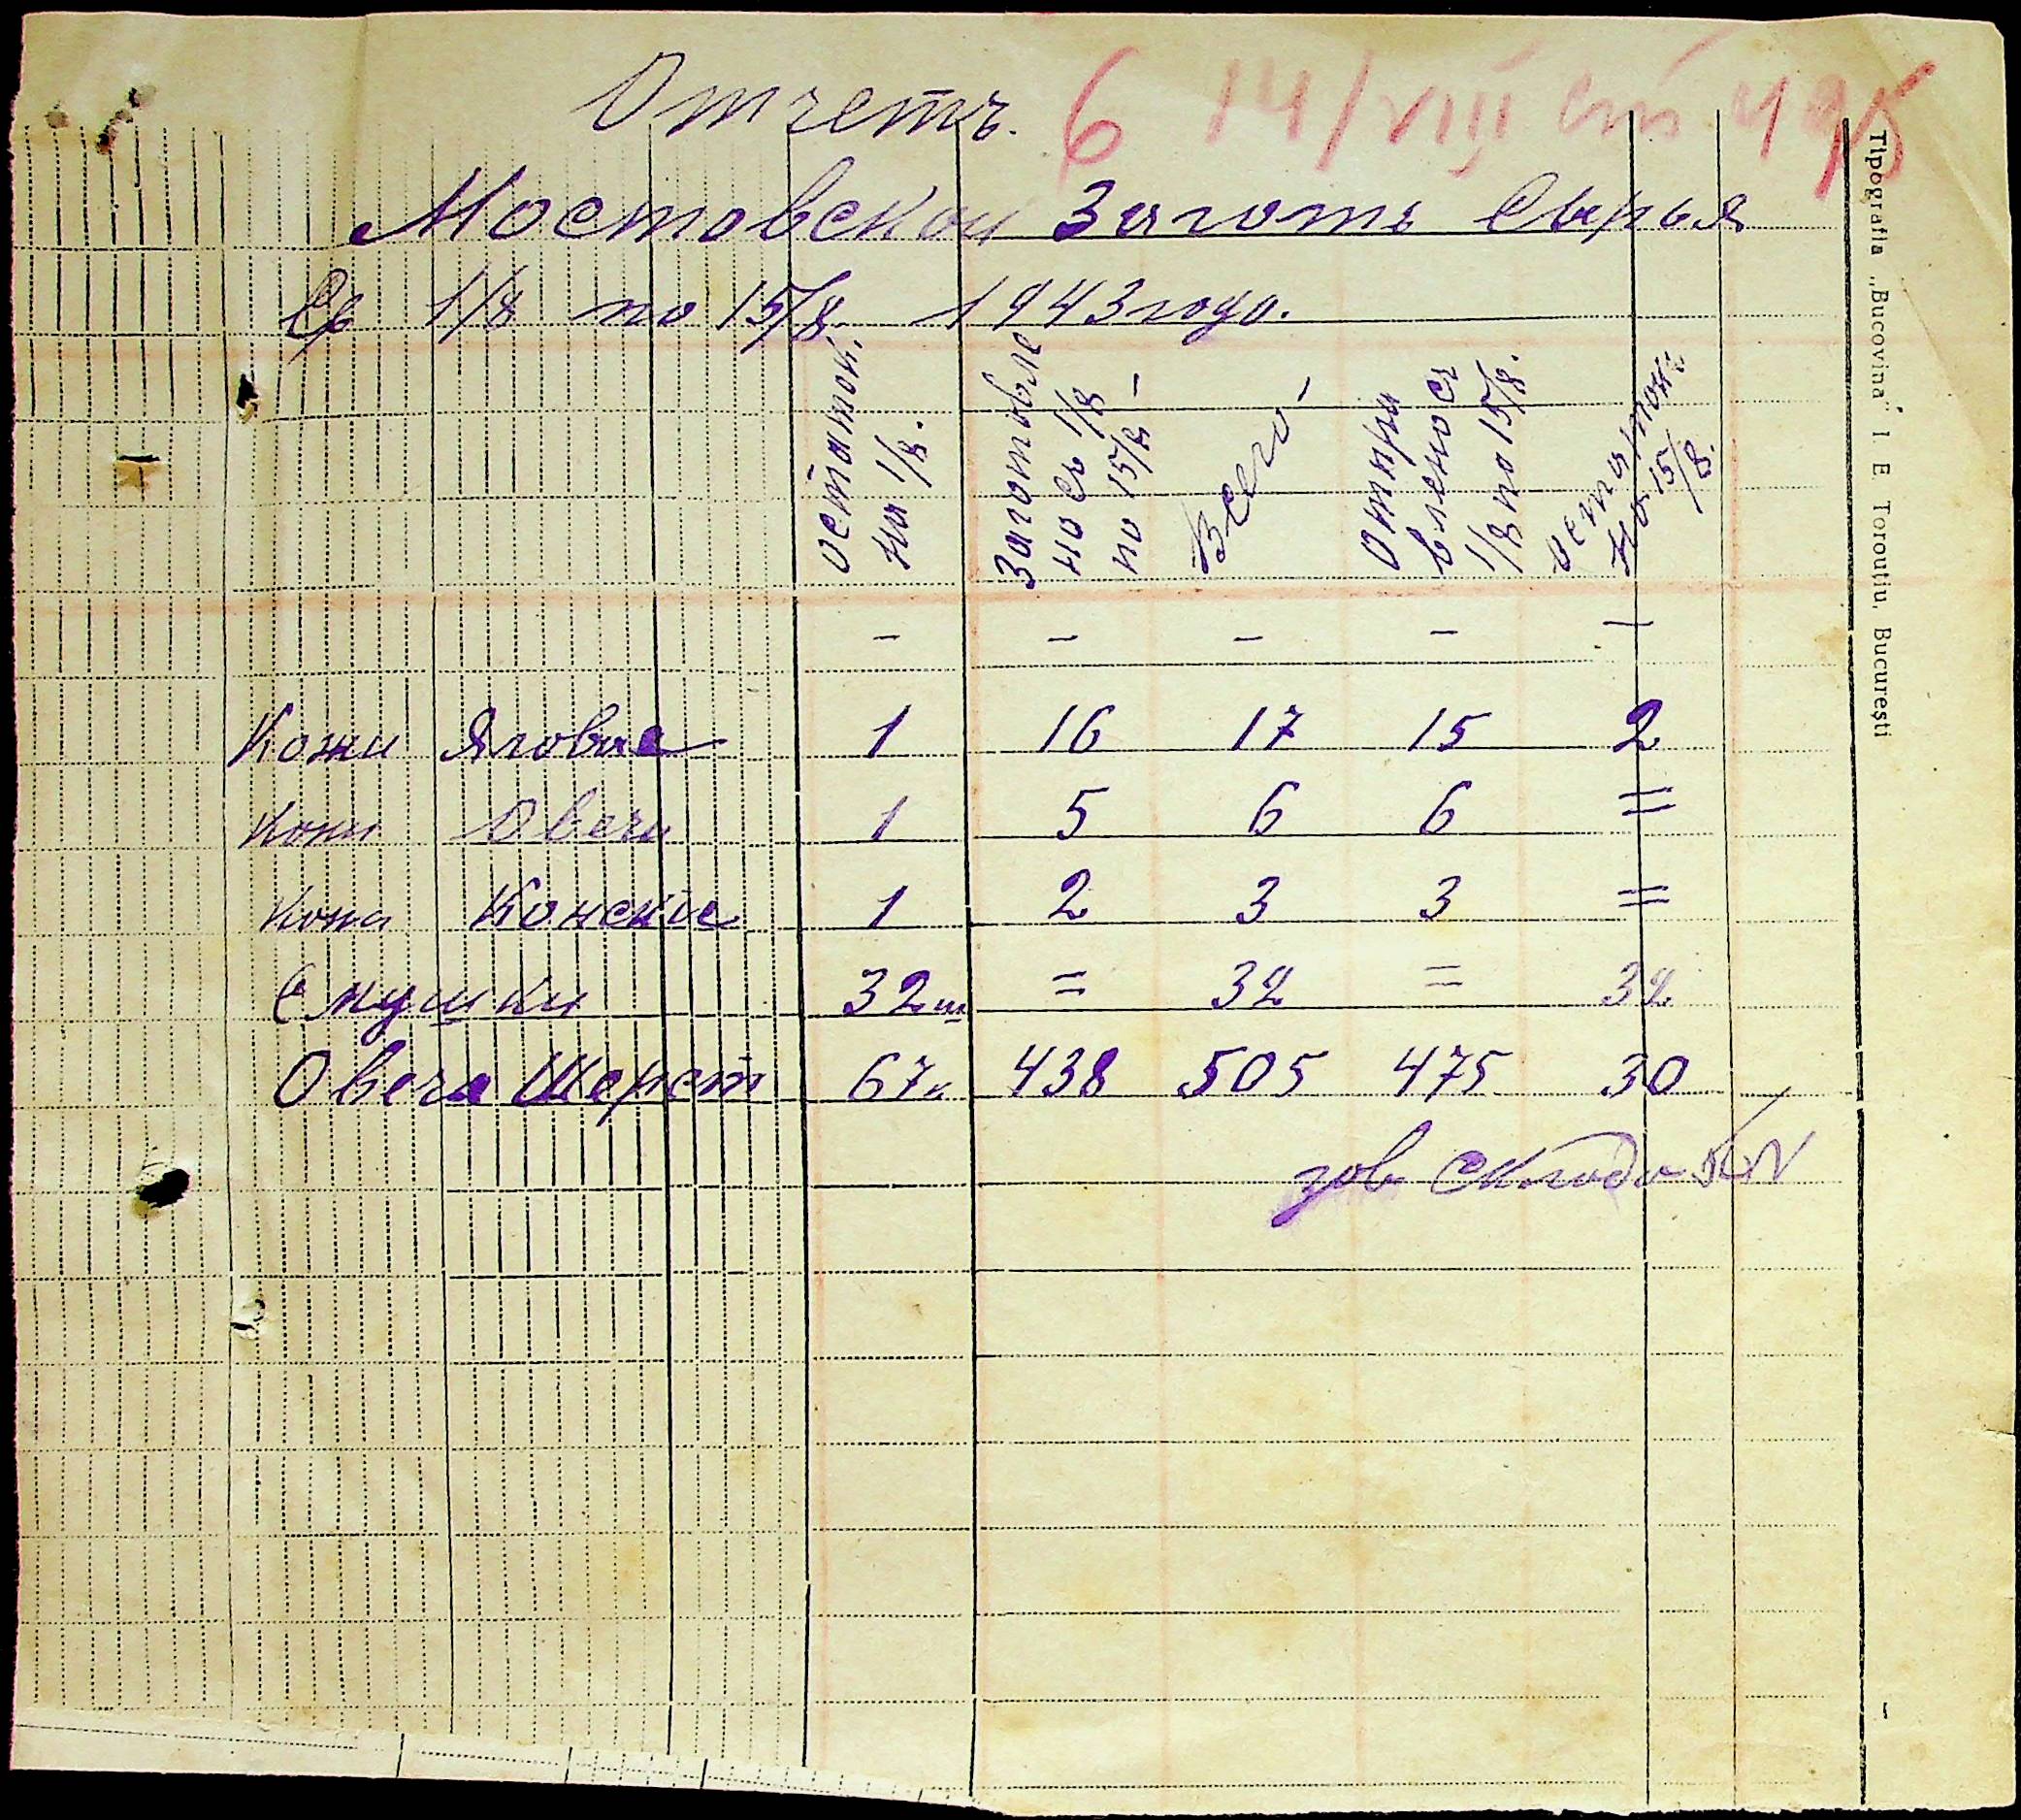 Отчетъ. 6 14/VIII
Мостовской Заготъ Сырья
Съ 1/8 по 15/8. 1943 года.
Остаток.
на 1/8.
Заготовле
но съ 1/8
по 15/8 –
Всего –
Отпра
влено съ
1/8 по 15/8.
Остаток
на 15/8.
– – – – –
Кожи Яловые 1 16 17 15 2
Кожи Овечи 1 5 6 6 =
Кожа Конские 1 2 3 3 =
Смушки 32 ш = 32 = 32
Овеча Шерсть 67к 438 505 475 30
зав складо
Tipografia „Bucovina" I E Toroutiu, Bucureşti